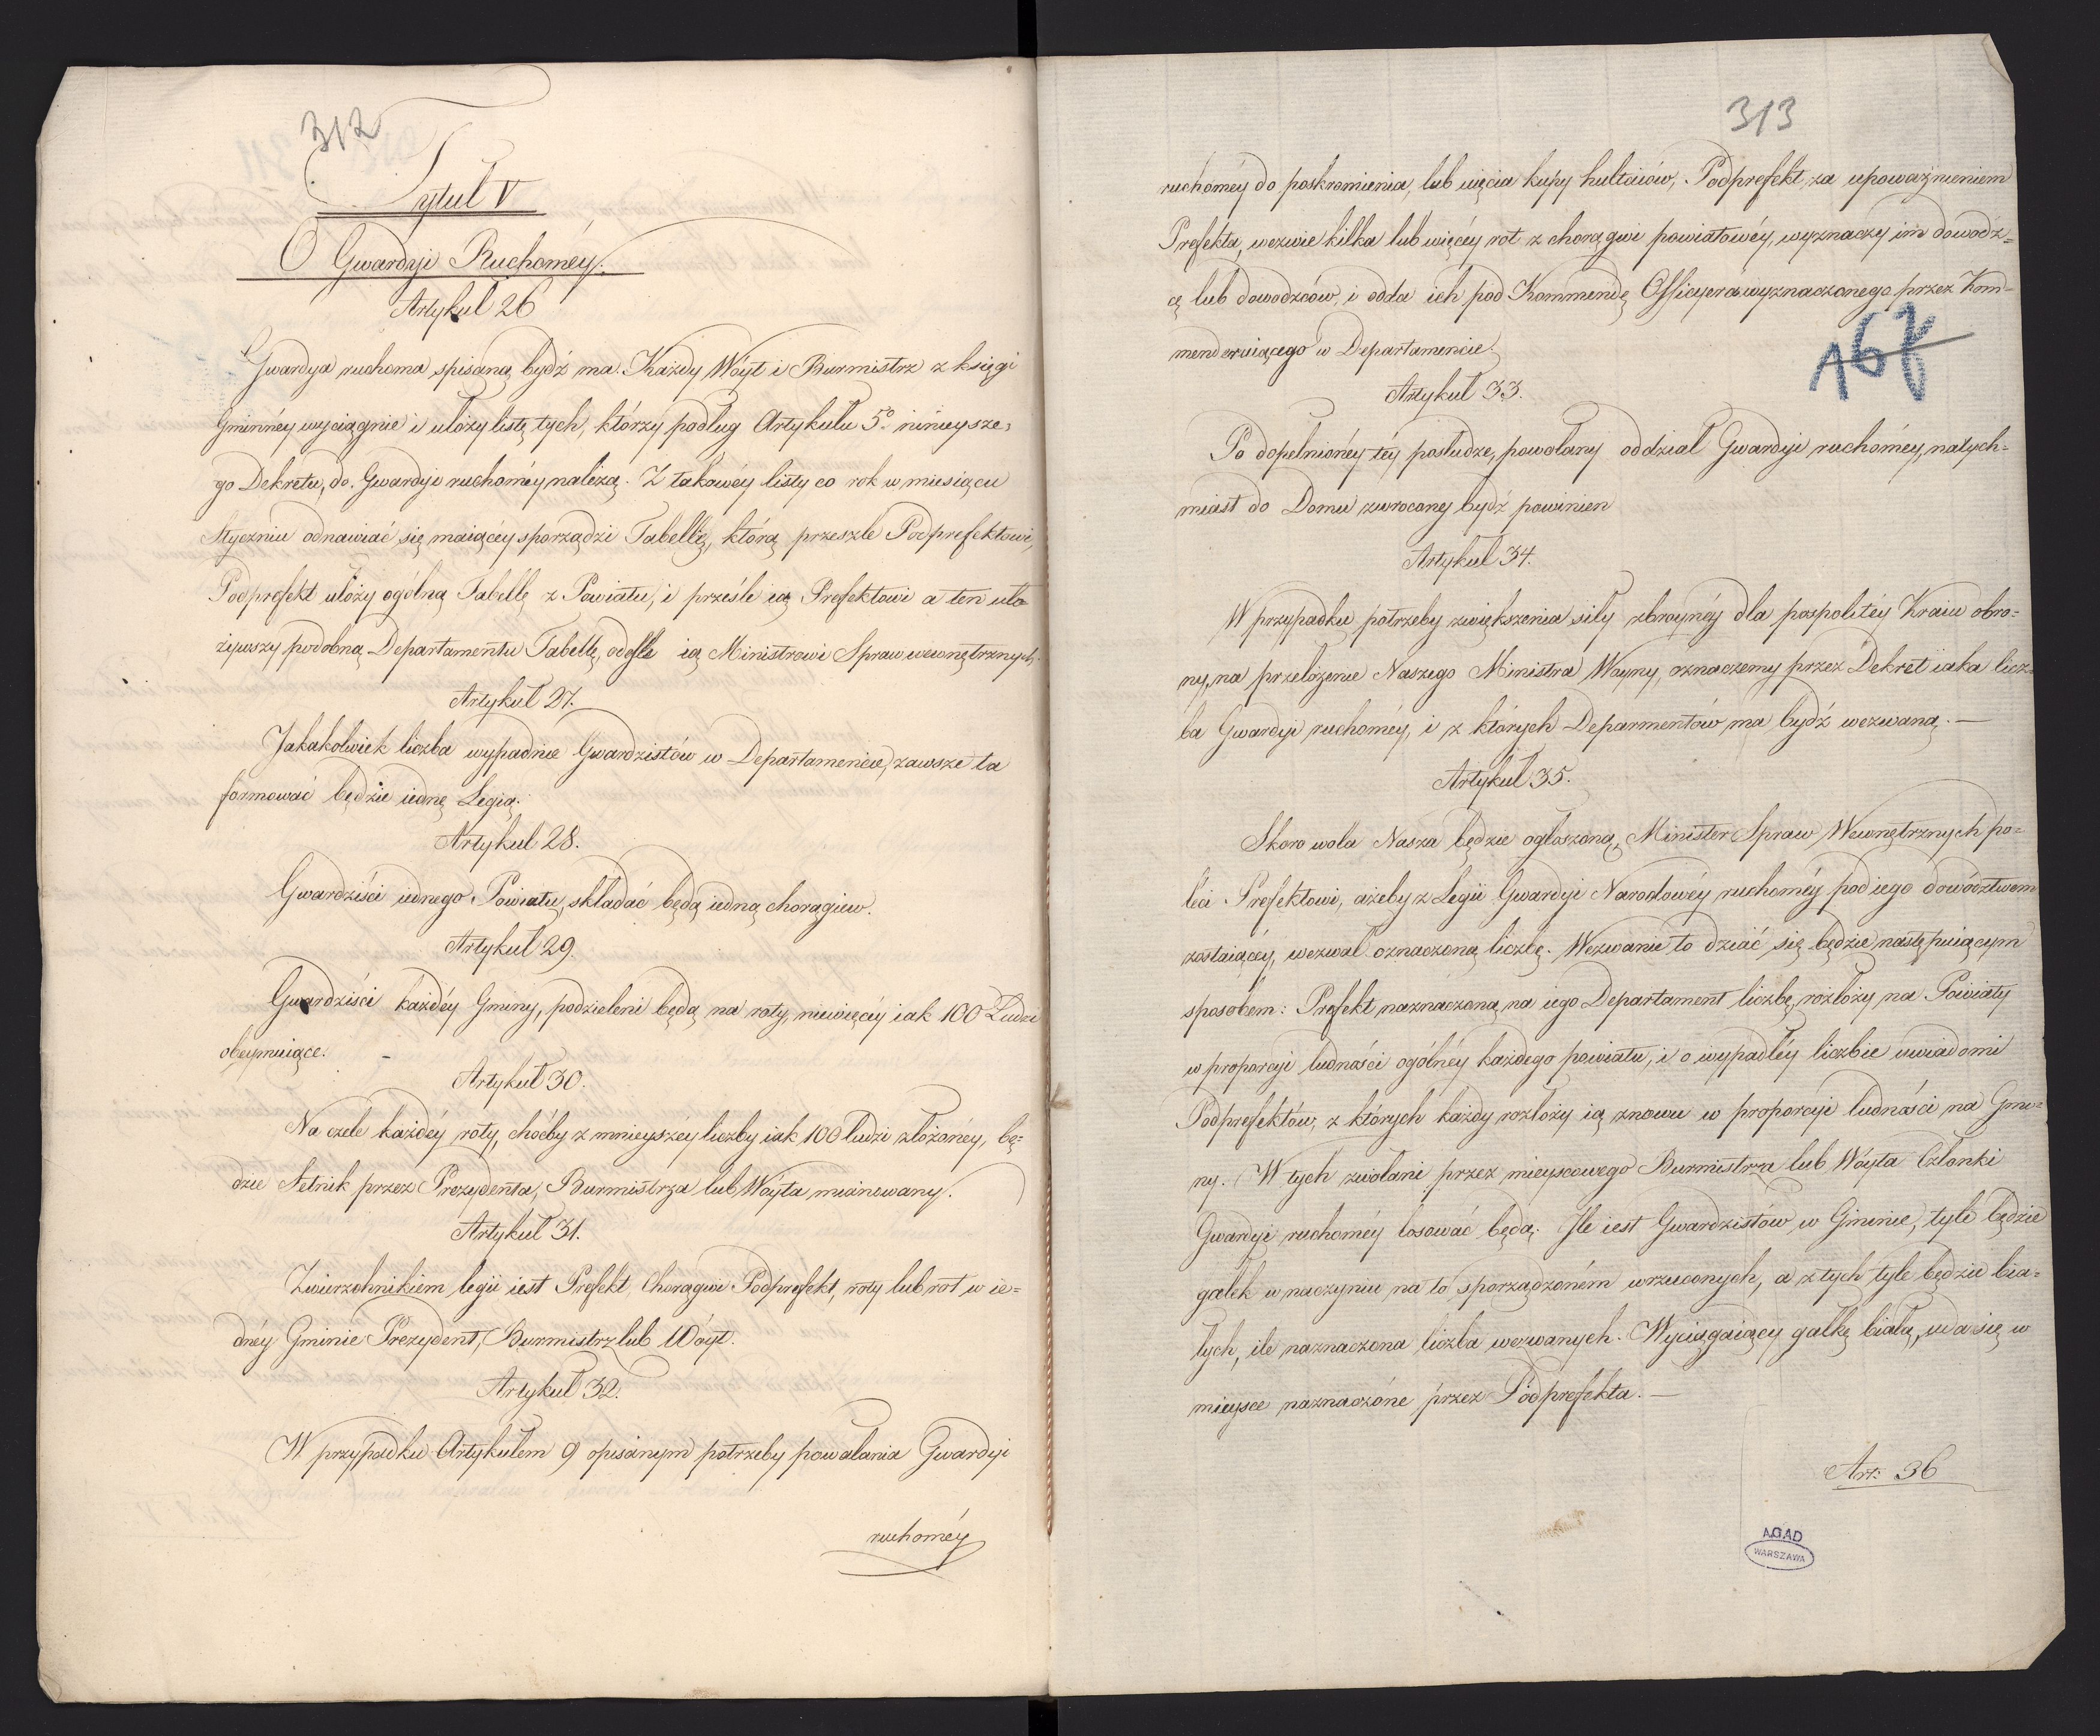 312
Tytuł V
O Gwardyi Ruchoméy.
Artykuł 26
Gwardya ruchoma spisaną bydź ma. Każdy Wóyt i Burmistrz z księgi
Gminnéy wyciągnie i ułoży listę tych, którzy podług Artykułu 5º ninieysze,
go Dekretu, do Gwardyi ruchoméy należą. Z takowéy listy co rok w miesiącu
Styczniu odnawiać się maiącéy sporządzi Tabellę, którą przeszle Podprefektowi,
Podprefekt ułoży ogólną Tabellę z Powiatu, i prześle ią Prefektowi a ten uło
żywszy podobną Departamentu Tabellę, odeszle ią Ministrowi Spraw wewnętrznych.
Artykuł 27.
Jakakolwiek liczba wypadnie Gwardzistów w Departamencie, zawsze ta
formować będzie iednę Legią.
Artykuł 28.
Gwardziści iednego Powiatu, składać będą iedną chorągiew.
Artykuł 29.
Gwardziści każdéy Gminy, podzieleni będą na roty, niewięcéy iak 100 Ludzi
obeymuiące.
Artykuł 30.
Na czele każdéy roty, choćby z mnieyszéy liczby iak 100 ludzi złożonéy, bę=
dzie Setnik przez Prezydenta, Burmistrza lub Wóyta mianowany.
Artykuł 31.
Zwierzchnikiem legii iest Prefekt, Chorągwi Podprefekt, roty lub rot w ie=
dnéy Gminie Prezydent, Burmistrz lub Wóyt.
Artykuł 32.
W przypadku Artykułem 9 opisanym potrzeby powołania Gwardyi
ruchoméy
313
ruchoméy do poskromienia, lub uięcia kupy hultaiów, Podprefekt, za upoważnieniem
Prefekta, wezwie kilka lub więcéy rot z chorągwi powiatowéy, wyznaczy im dowódz=
cę lub dowodzców, i odda ich pod Kommendę Officyera wyznaczonego przez Kom=
menderuiącego w Departamencie.
167
Artykuł 33.
Po dopełnionéy téy posłudze, powołany oddział Gwardyi ruchoméy, natych=
miast do Domu zwrocony bydź powinien
Artykuł 34.
W przypadku potrzeby zwiększenia siły zbroynéy dla pospolitéy Kraiu obro=
ny, na przełożenie Naszego Ministra Woyny, oznaczemy przez Dekret iaka licz=
ba Gwardyi ruchoméy, i z których Deparmentów ma bydź wezwaną. —
Artykuł 35.
Skoro wola Nasza będzie ogłoszoną, Minister Spraw Wewnętrznych po=
leci Prefektowi, ażeby z Legii Gwardyi Narodowéy ruchoméy pod iego dowództwem
zostaiącéy, wezwał oznaczoną liczbę. Wezwanie to dziać się będzie następuiącym
sposobem: Prefekt naznaczoną na iego Departament liczbę, rozłoży na Powiaty
w proporcyi ludności ogólnéy każdego powiatu, i o wypadłéy liczbie uwiadomi
Podprefektów, z których każdy rozłoży ią znowu w proporcyi ludności na Gmi=
ny. W tych zwołani przez mieyscowego Burmistrza lub Wóyta Członki
Gwardyi ruchoméy losować będą. Ile iest Gwardzistów w Gminie, tyle będzie
gałek w naczyniu na to sporządzoném wrzuconych, a z tych tyle będzie bia=
łych, ile naznaczona liczba wezwanych. Wyciągaiący gałkę białą, uda się w
mieysce naznaczone przez Podprefekta. —
Art: 36
A.G.AD
WARSZAWA